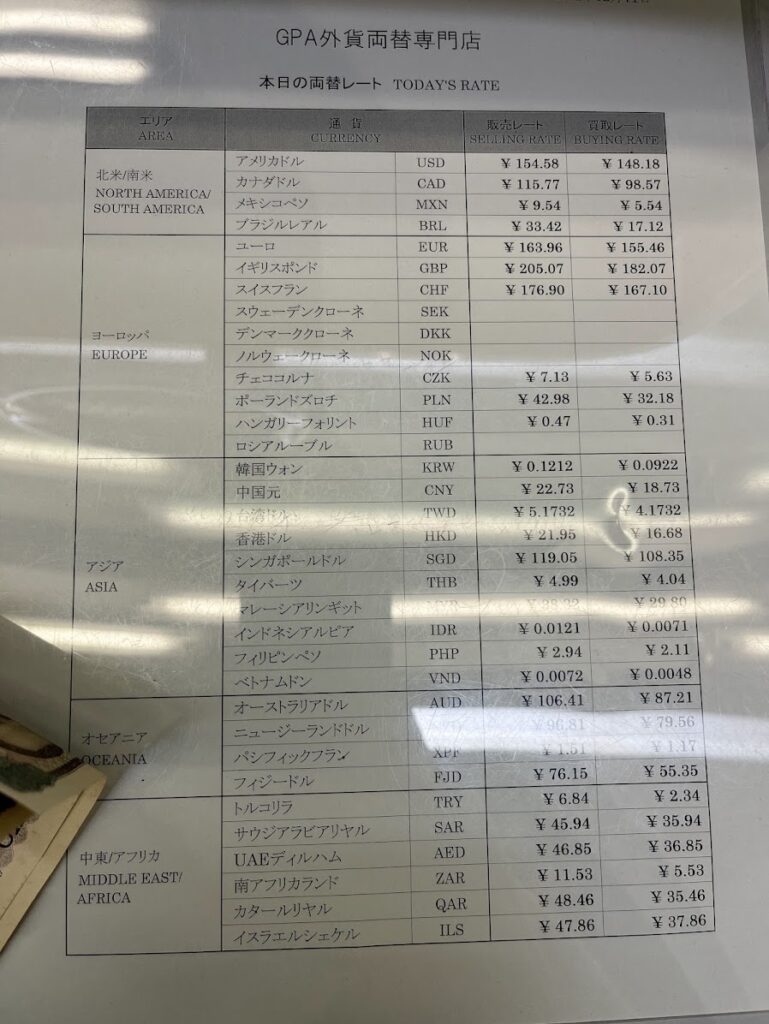 GPA外貨両替専門店
本日の両替レート TODAY'S RATE
エリア AREA 通貨 CURRENCY 販売レート SELLING RATE 買取レート BUYING RATE
北米/南米
NORTH AMERICA/
SOUTH AMERICA
アメリカドル USD ¥ 154.58 ¥ 148.18
カナダドル CAD ¥ 115.77 ¥ 98.57
メキシコペソ MXN ¥ 9.54 ¥ 5.54
ブラジルレアル BRL ¥ 33.42 ¥ 17.12
ヨーロッパ
EUROPE
ユーロ EUR ¥ 163.96 ¥ 155.46
イギリスポンド GBP ¥ 205.07 ¥ 182.07
スイスフラン CHF ¥ 176.90 ¥ 167.10
スウェーデンクローネ SEK
デンマーククローネ DKK
ノルウェークローネ NOK
チェココルナ CZK ¥ 7.13 ¥ 5.63
ポーランドズロチ PLN ¥ 42.98 ¥ 32.18
ハンガリーフォリント HUF ¥ 0.47 ¥ 0.31
ロシアルーブル RUB
アジア
ASIA
韓国ウォン KRW ¥ 0.1212 ¥ 0.0922
中国元 CNY ¥ 22.73 ¥ 18.73
台湾ドル TWD ¥ 5.1732 ¥ 4.1732
香港ドル HKD ¥ 21.95 ¥ 16.68
シンガポールドル SGD ¥ 119.05 ¥ 108.35
タイバーツ THB ¥ 4.99 ¥ 4.04
マレーシアリンギット ¥ 29.80
インドネシアルピア IDR ¥ 0.0121 ¥ 0.0071
フィリピンペソ PHP ¥ 2.94 ¥ 2.11
ベトナムドン VND ¥ 0.0072 ¥ 0.0048
オセアニア
OCEANIA
オーストラリアドル AUD ¥ 106.41 ¥ 87.21
ニュージーランドドル ¥ 96.81 ¥ 79.56
パシフィックフラン XPF ¥ 1.51 ¥ 1.17
フィジードル FJD ¥ 76.15 ¥ 55.35
中東/アフリカ
MIDDLE EAST/
AFRICA
トルコリラ TRY ¥ 6.84 ¥ 2.34
サウジアラビアリヤル SAR ¥ 45.94 ¥ 35.94
UAEディルハム AED ¥ 46.85 ¥ 36.85
南アフリカランド ZAR ¥ 11.53 ¥ 5.53
カタールリヤル QAR ¥ 48.46 ¥ 35.46
イスラエルシェケル ILS ¥ 47.86 ¥ 37.86